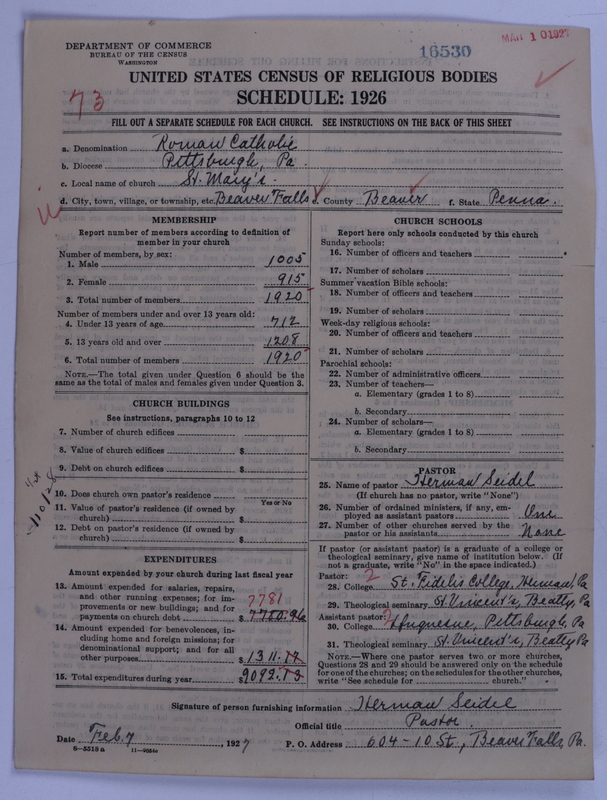 DEPARTMENT OF COMMERCE
BUREAU OF THE CENSUS
WASHINGTON
16530
MAR 10 1927
UNITED STATES CENSUS OF RELIGIOUS BODIES
SCHEDULE: 1926
73
FILL OUT A SEPARATE SCHEDULE FOR EACH CHURCH. SEE INSTRUCTIONS ON THE BACK OF THIS SHEET
a. Denomination Roman Catholic
b. Diocese Pittsburgh, Pa.
c. Local name of church St. Mary's.
d. City, town, village, or township, etc. Beaver Falls e. County Beaver f. State Penna.
MEMBERSHIP
Report number of members according to definition of
member in your church
Number of members, by sex:
1. Male 1005
2. Female 915
3. Total number of members 1920
Number of members under and over 13 years old:
4. Under 13 years of age 712
5. 13 years old and over 1208
6. Total number of members 1920
NOTE.—The total given under Question 6 should be
same as the total of males and females given under Question 3.
CHURCH BUILDINGS
See instructions, paragraphs 10 to 12
7. Number of church edifices
8. Value of church edifices $
9. Debt on church edifices $
10. Does church own pastor's residence
Yes or No
11. Value of pastor's residence (if owned by
church) $
12. Debt on pastor's residence (if owned by
church) $
EXPENDITURES
Amount expended by your church during last fiscal year
13. Amount expended for salaries, repairs,
and other running expenses; for im-
provements or new buildings; and for
payments on church debt $ 7780.96
7781
14. Amount expended for benevolences, in-
cluding home and foreign missions; for
denominational support; and for all
other purposes $ 1311.17
15. Total expenditures during year $ 9092.13
CHURCH SCHOOLS
Report here only schools conducted by this church
Sunday schools:
16. Number of officers and teachers
17. Number of scholars
Summer vacation Bible schools:
18. Number of officers and teachers
19. Number of scholars
Week-day religious schools:
20. Number of officers and teachers
21. Number of scholars
Parochial schools:
22. Number of administrative officers
23. Number of teachers—
a. Elementary (grades 1 to 8)
b. Secondary
24. Number of scholars—
a. Elementary (grades 1 to 8)
b. Secondary
PASTOR
25. Name of pastor Herman Seidel
(If church has no pastor, write "None")
26. Number of ordained ministers, if any, em-
ployed as assistant pastors One
27. Number of other churches served by the
pastor or his assistants None
If pastor (or assistant pastor) is a graduate of a college or
theological seminary, give name of institution below. (If
not a graduate, write "No" in the space indicated.)
Pastor: 2
28. College St. Fidelis College, Herman, Pa
29. Theological seminary St. Vincent's, Beatty, Pa
Assistant pastor: 2
30. College Duquesne, Pittsburgh, Pa
31. Theological seminary St. Vincent's, Beatty Pa
NOTE.—Where one pastor serves two or more churches,
Questions 28 and 29 should be answered only on the schedule
for one of the churches; on the schedules for the other churches,
write "See schedule for church."
Signature of person furnishing information Herman Seidel
Official title Pastor
Date Feb. 7, 1927 P. O. Address 604-10 St., Beaver Falls, Pa.
8—5518 a 11—9064a